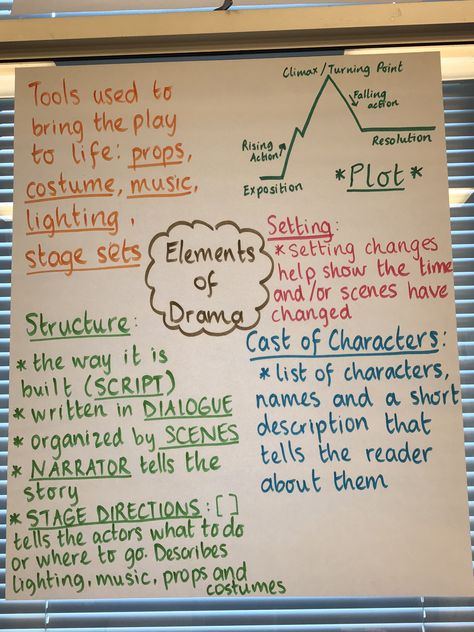 Tools used to
bring the play
to life: props,
costume, music,
lighting,
stage sets
Climax/Turning Point
Falling
action
Rising
Action
Resolution
Exposition
*Plot*
Elements
of
Drama
Setting:
*setting changes
help show the time
and/or scenes have
changed
Structure:
* the way it is
built (SCRIPT)
* written in DIALOGUE
* organized by SCENES
* NARRATOR tells the
story
* STAGE DIRECTIONS: [ ]
tells the actors what to do
or where to go. Describes
lighting, music, props and
costumes
Cast of Characters:
* list of characters,
names and a short
description that
tells the reader
about them